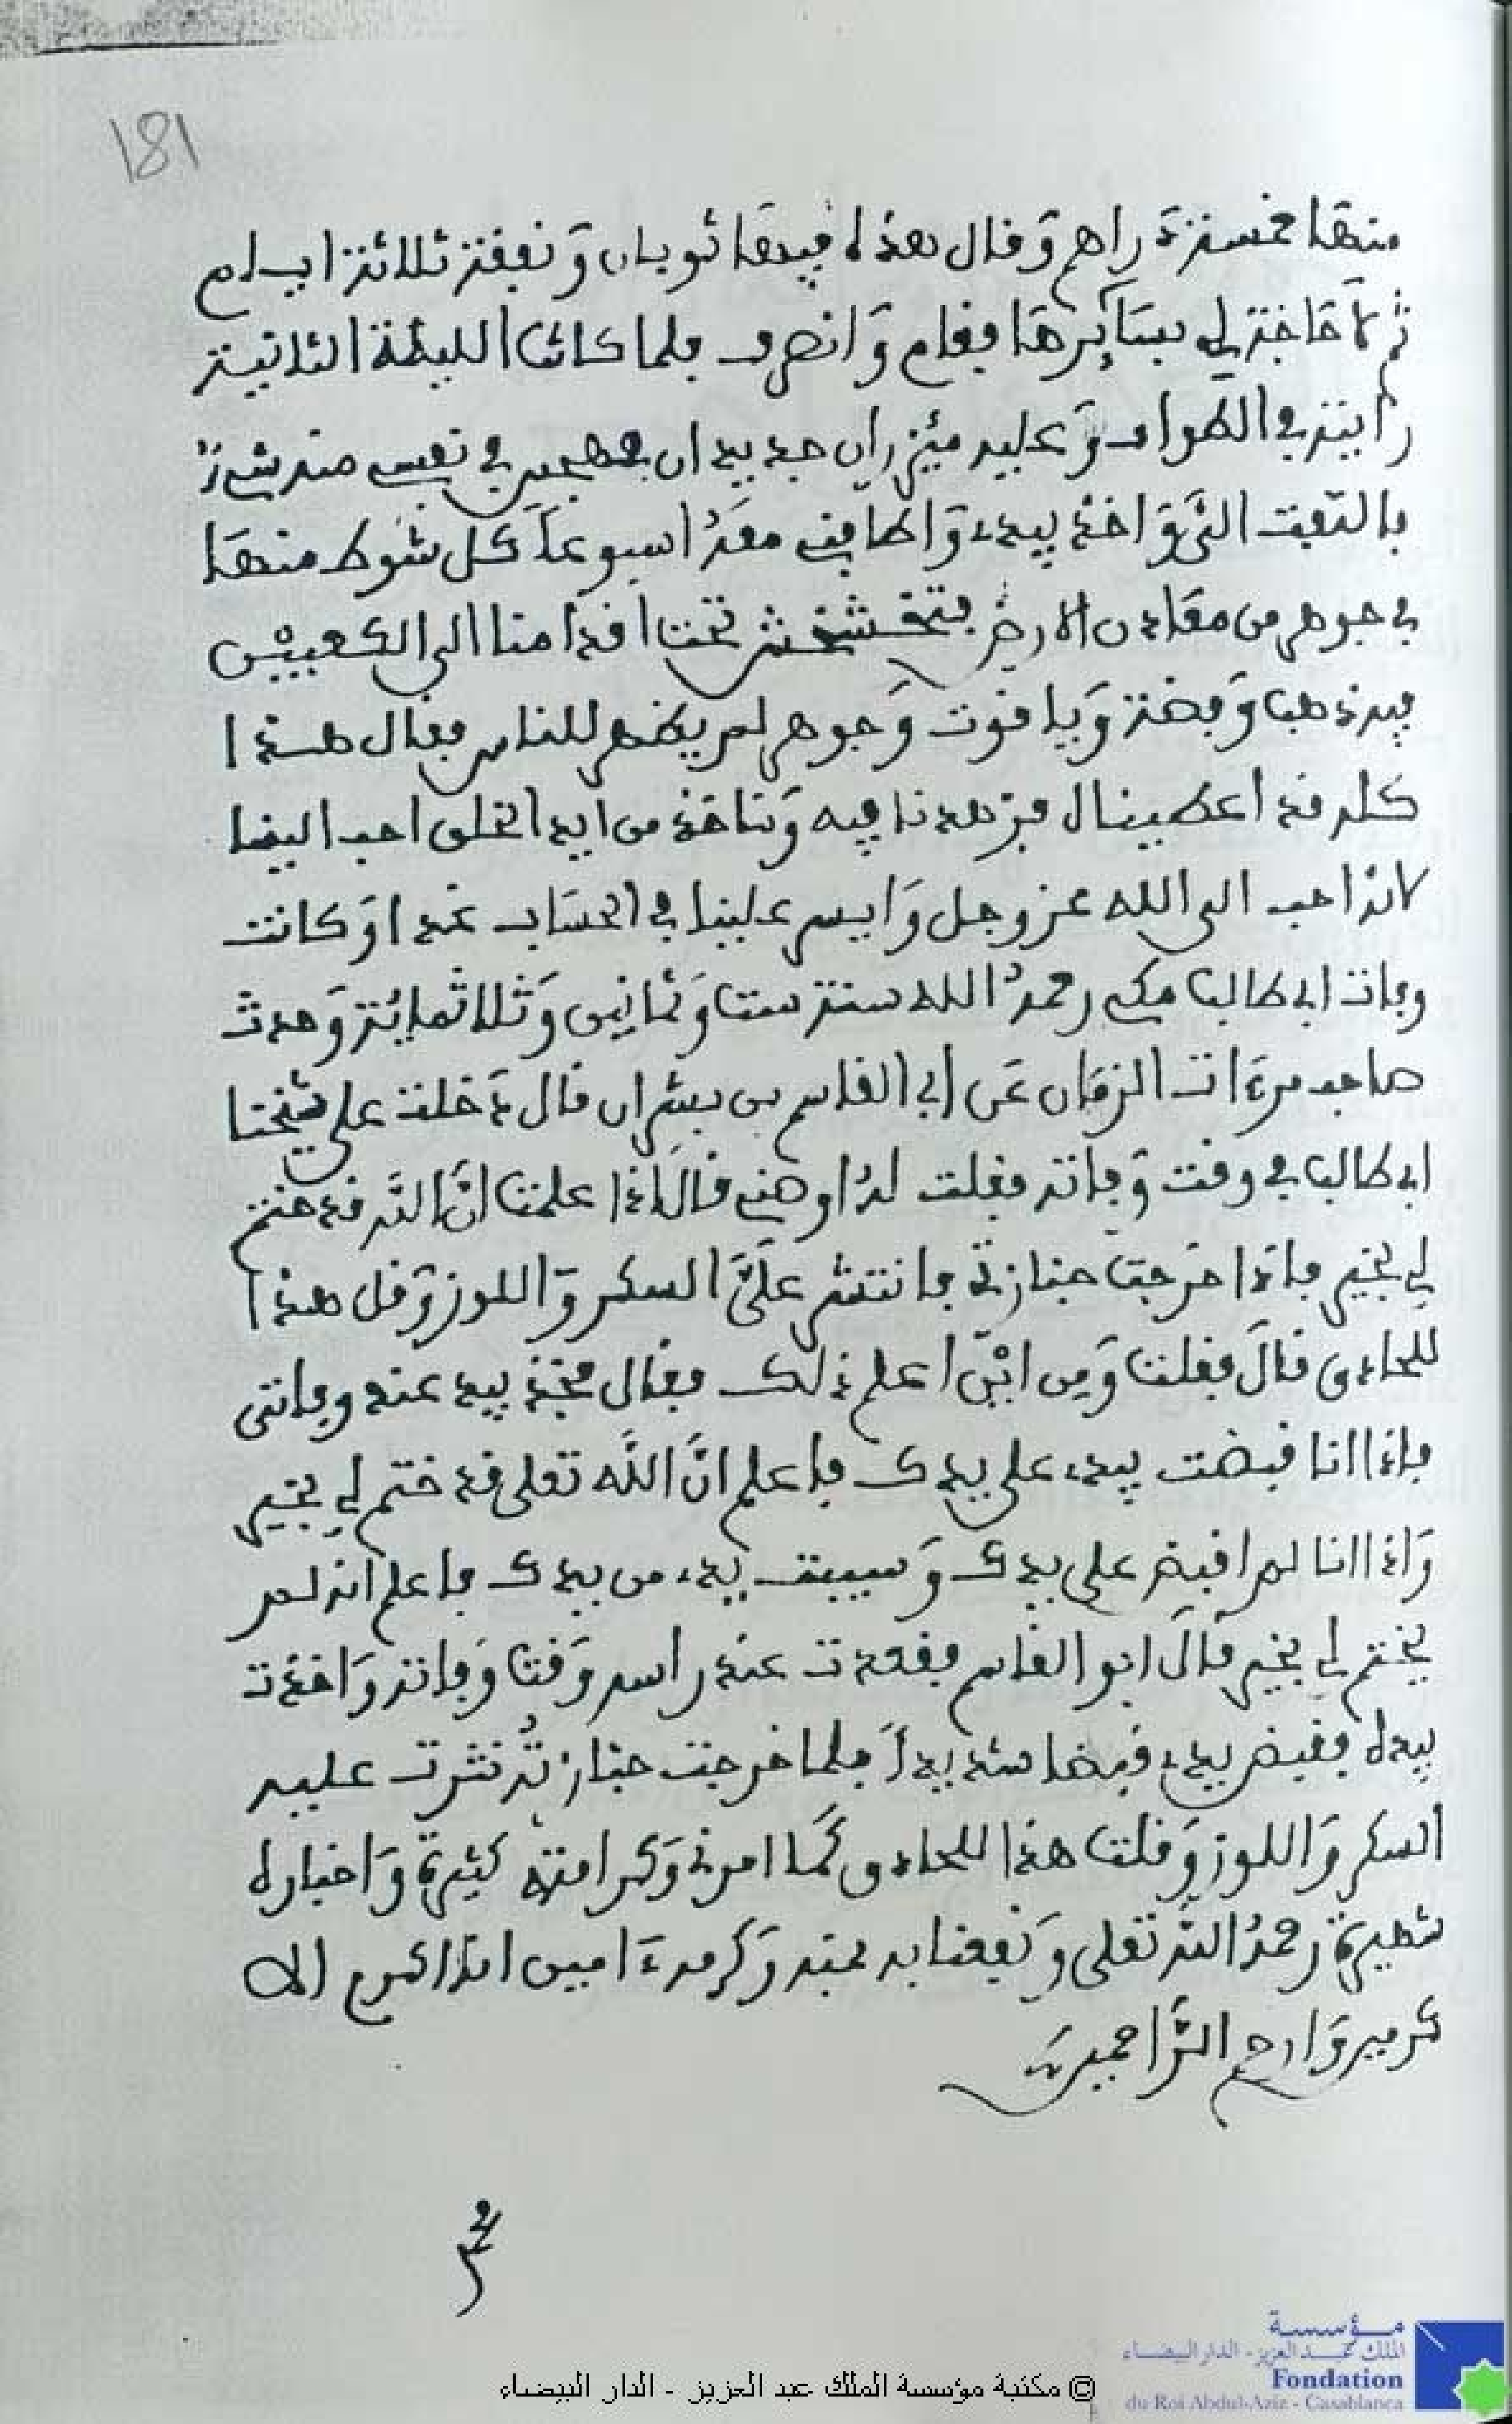 181
منها خمسة دراهم وقال هذه فيها ثوبان ونفقة ثلاثة ايام
ثم لا حاجة لي بسائرها فقام وانصرف فلما كانت الليلة الثانية
رايته في الطواف وعليه مئزران جديدان فهجس في نفسي منه شيء
فالتفت الي واخذ بيدي واطافني معه اسبوعا كل شوط منها
في جوهر من معادن الارض يتخشخش تحت اقدامنا الى الكعبين
فيه ذهب وفضة وياقوت وجوهر لم يظهر للناس فقال هذا
كله قد اعطينا فزهدنا فيه وناخذ من ايدي الخلق احب الينا
لانه احب الى الله عز وجل وايسر علينا في الحساب غدا وكانت
وفات ابي طالب مكي رحمه الله سنة ست وثمانين وثلاثمائة وحدث
صاحب مرءات الزمان عن ابي القاسم بن بشران قال دخلت على شيخنا
ابي طالب في وقت وفاته فقلت له اوصني قال اذا علمت ان الله قد ختم
لي بخير فاذا خرجت جنازتي فانتشر علي السكر واللوز وقل هذا
للحاذق قال فقلت ومن اين اعلم ذلك فقال فخذ بيدي عند وفاتي
فاذا انا قبضت بيدي على يدك فاعلم ان الله تعلى قد ختم لي بخير
واذا انا لم اقبض على يدك وسيبت يدي من يدك فاعلم انه لم
يختم لي بخير قال ابو القاسم فقعدت عند راسه وقت وفاته واخذت
بيده فقبض يدي قبضا شديدا فلما خرجت جنازته نثرت عليه
السكر واللوز وقلت هذا للحاذق كما امرني وكرامته كثيرة واخباره
شهيرة رحمه الله تعلى ونفعنا به بمنه وكرمه ءامين انه اكرم الا
كرمين وارحم الراحمين
مؤسسة
الملك عبد العزيز - الدار البيضاء
Fondation
du Roi Abdul-Aziz - Casablanca
© مكتبة مؤسسة الملك عبد العزيز - الدار البيضاء